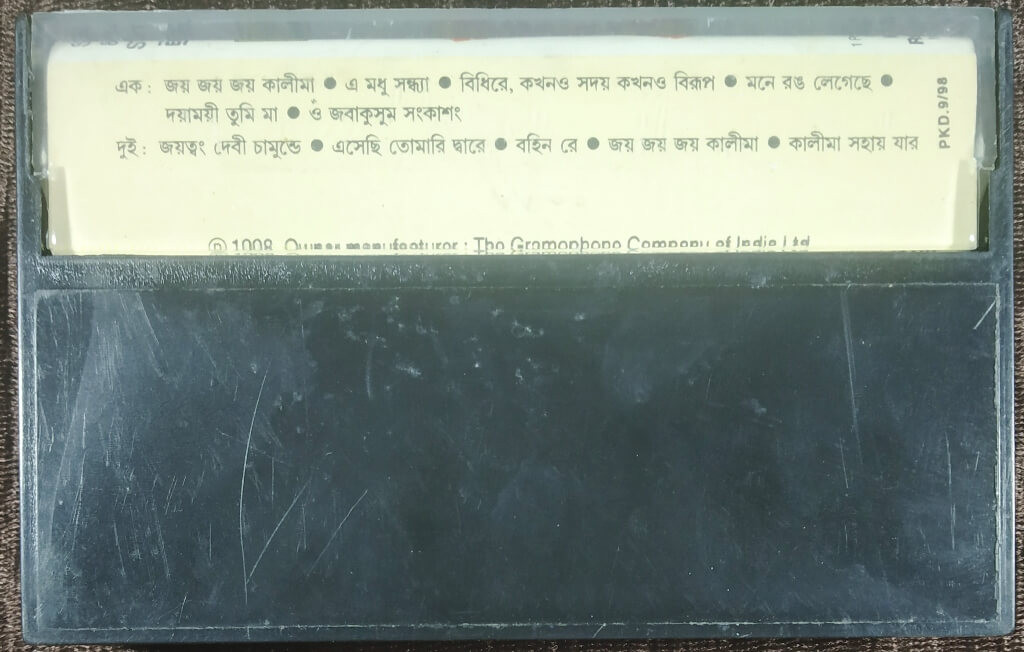 এক : জয় জয় জয় কালীমা ● এ মধু সন্ধ্যা ● বিধিরে, কখনও সদয় কখনও বিরূপ ● মনে রঙ লেগেছে ●
দয়াময়ী তুমি মা ● ওঁ জবাকুসুম সংকাশং
দুই : জয়ত্বং দেবী চামুন্ডে ● এসেছি তোমারি দ্বারে ● বহিন রে ● জয় জয় জয় কালীমা ● কালীমা সহায় যার
PKD.9/98
℗ 1998 Owner manufacturer : The Gramophone Company of India Ltd